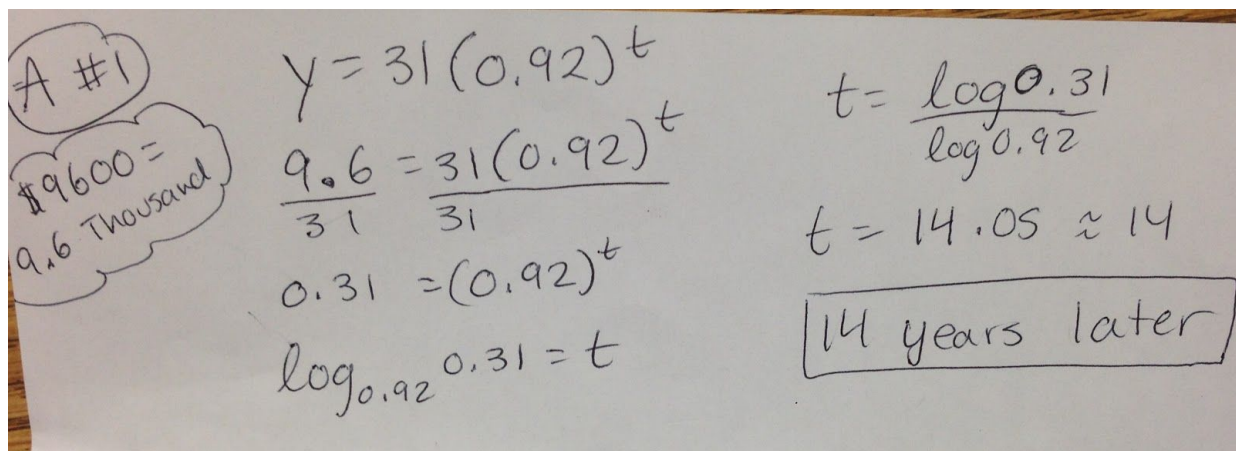 A #1
$9600 =
9.6 Thousand
y = 31(0.92)^t
9.6/31 = 31(0.92)^t/31
0.31 = (0.92)^t
log_0.92 0.31 = t
t = log 0.31/log 0.92
t = 14.05 ≈ 14
14 years later